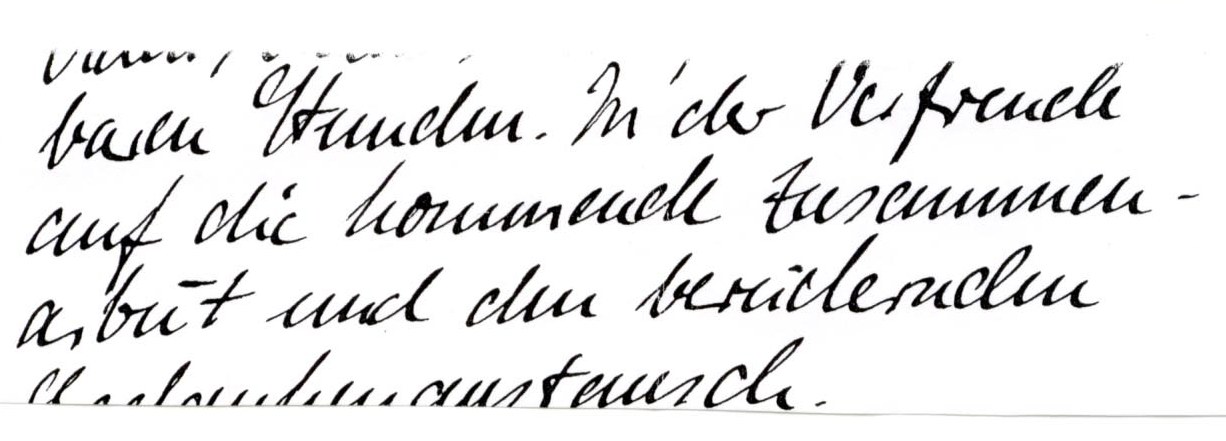 baren Stunden. In der Vorfreude
auf die kommende Zusammen-
arbeit und den bereichernden
Gedankenaustausch.